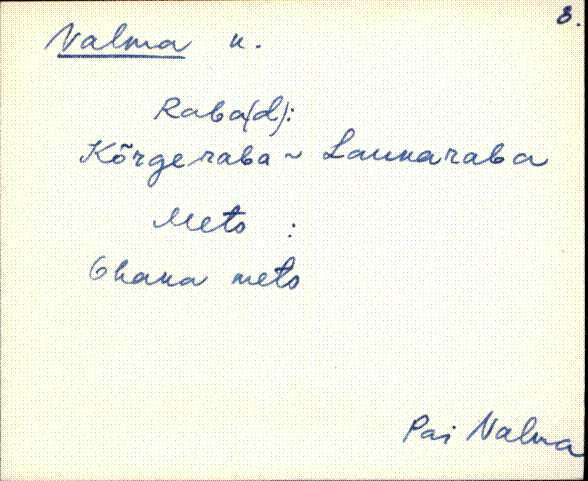 8.
Nalma k.
Raba(d):
Kõrgeraba ~ Laukaraba
Mets :
Ohaka mets
Pai Nalma